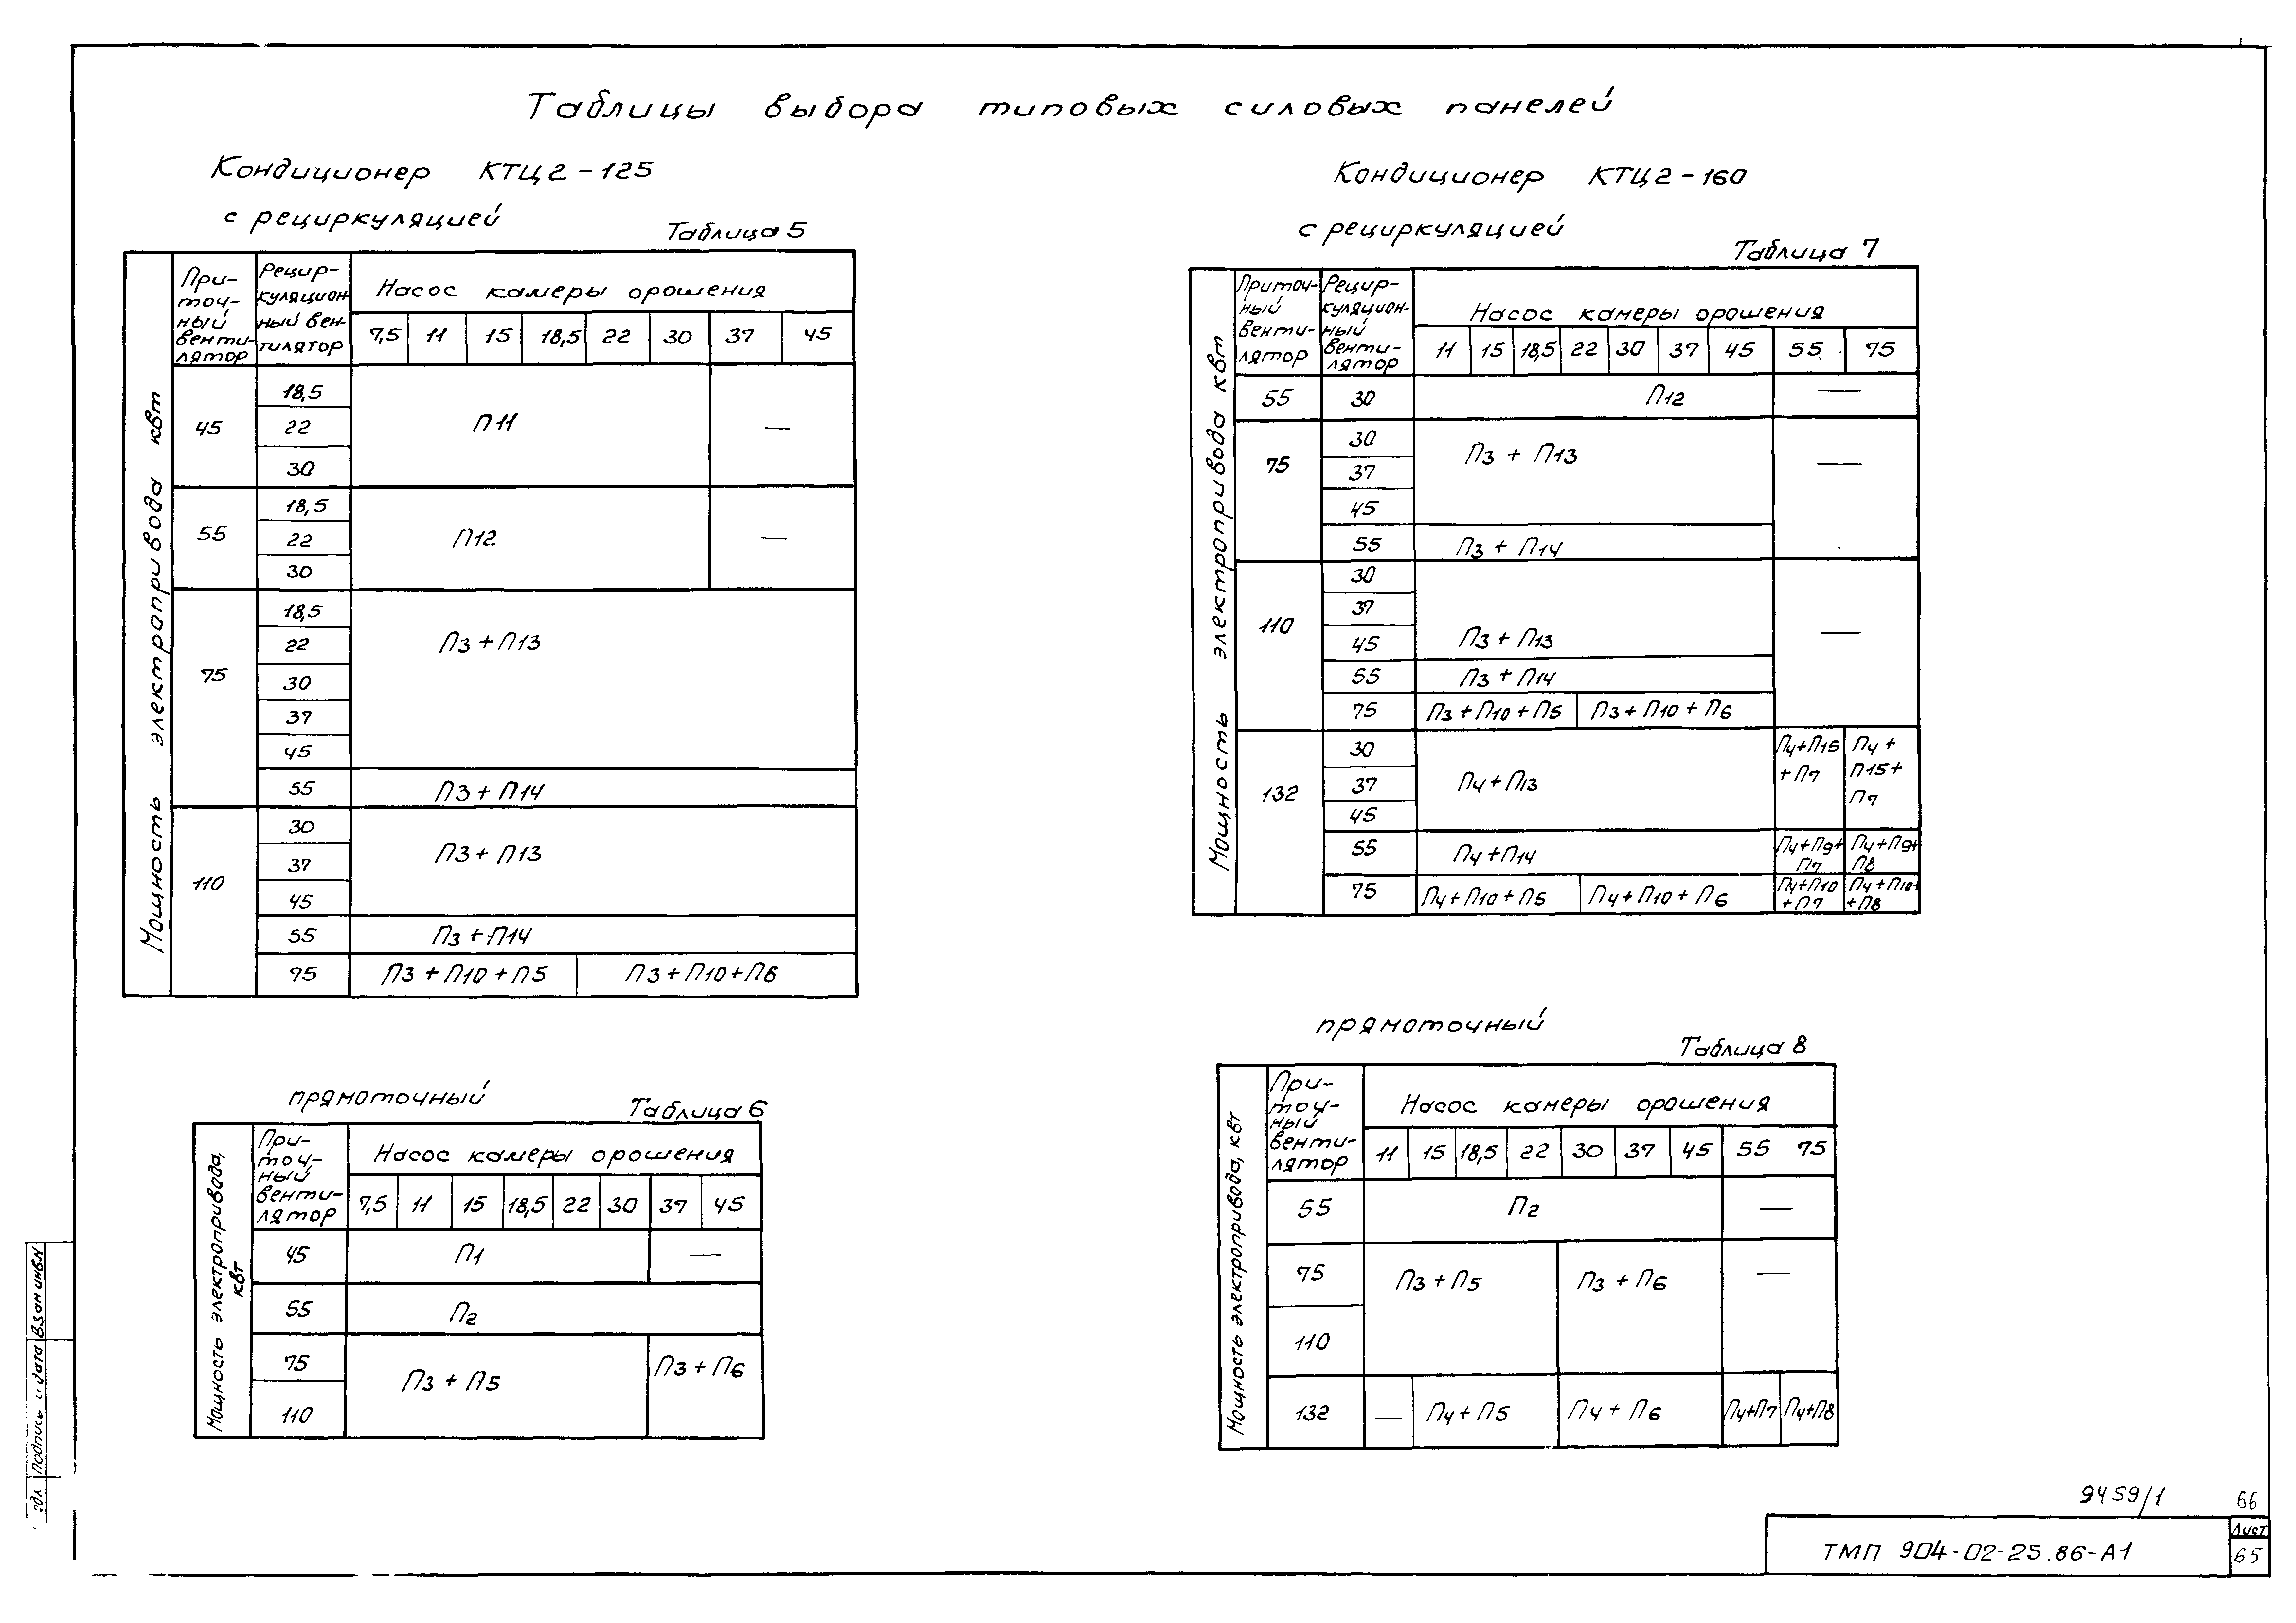 Таблицы выбора типовых силовых панелей
Кондиционер КТЦ2-125
с рециркуляцией
Таблица 5
Мощность электропривода квт
При-
точ-
ный
венти-
лятор
Рецир-
куляцион
ный вен-
тилятор
Насос камеры орошения
7,5 11 15 18,5 22 30 37 45
45 18,5 П11 —
22
30
55 18,5 П12 —
22
30
75 18,5 П3 + П13
22
30
37
45
55 П3 + П14
110 30 П3 + П13
37
45
55 П3 + П14
75 П3 + П10 + П5 П3 + П10 + П6
прямоточный
Таблица 6
Мощность электропривода,
квт
При-
точ-
ный
венти-
лятор
Насос камеры орошения
7,5 11 15 18,5 22 30 37 45
45 П1 —
55 П2
75 П3 + П5 П3 + П6
110
Кондиционер КТЦ2-160
с рециркуляцией
Таблица 7
Мощность электропривода квт
Приточ-
ный
венти-
лятор
Рецир-
куляцион-
ный
венти-
лятор
Насос камеры орошения
11 15 18,5 22 30 37 45 55 75
55 30 П12 —
75 30 П3 + П13 —
37
45
55 П3 + П14
110 30 П3 + П13 —
37
45
55 П3 + П14
75 П3 + П10 + П5 П3 + П10 + П6
132 30 П4 + П13
37
45
П4+П15
+ П7
П4 +
П15 +
П7
55 П4 + П14
П4+П9+
П7
П4+П9+
П8
75 П4 + П10 + П5 П4 + П10 + П6
П4+П10
+ П7
П4+П10+
+ П8
прямоточный
Таблица 8
Мощность электропривода, квт
При-
точ-
ный
венти-
лятор
Насос камеры орошения
11 15 18,5 22 30 37 45 55 75
55 П2 —
75 П3 + П5 П3 + П6 —
110
132 — П4 + П5 П4 + П6 П4+П7 П4+П8
9459/1 66
ТМП 904-02-25.86-А1
Лист
65
Взам инв N
Подпись и дата